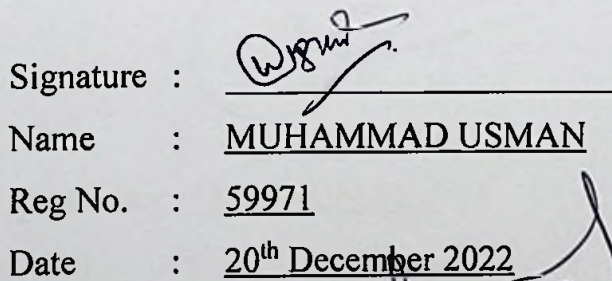 Signature :
Name : MUHAMMAD USMAN
Reg No. : 59971
Date : 20th December 2022